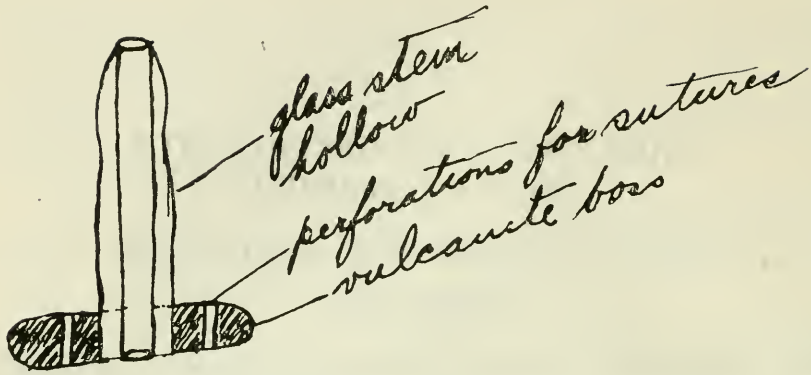 glass stem
hollow
perforations for sutures
vulcanite boss